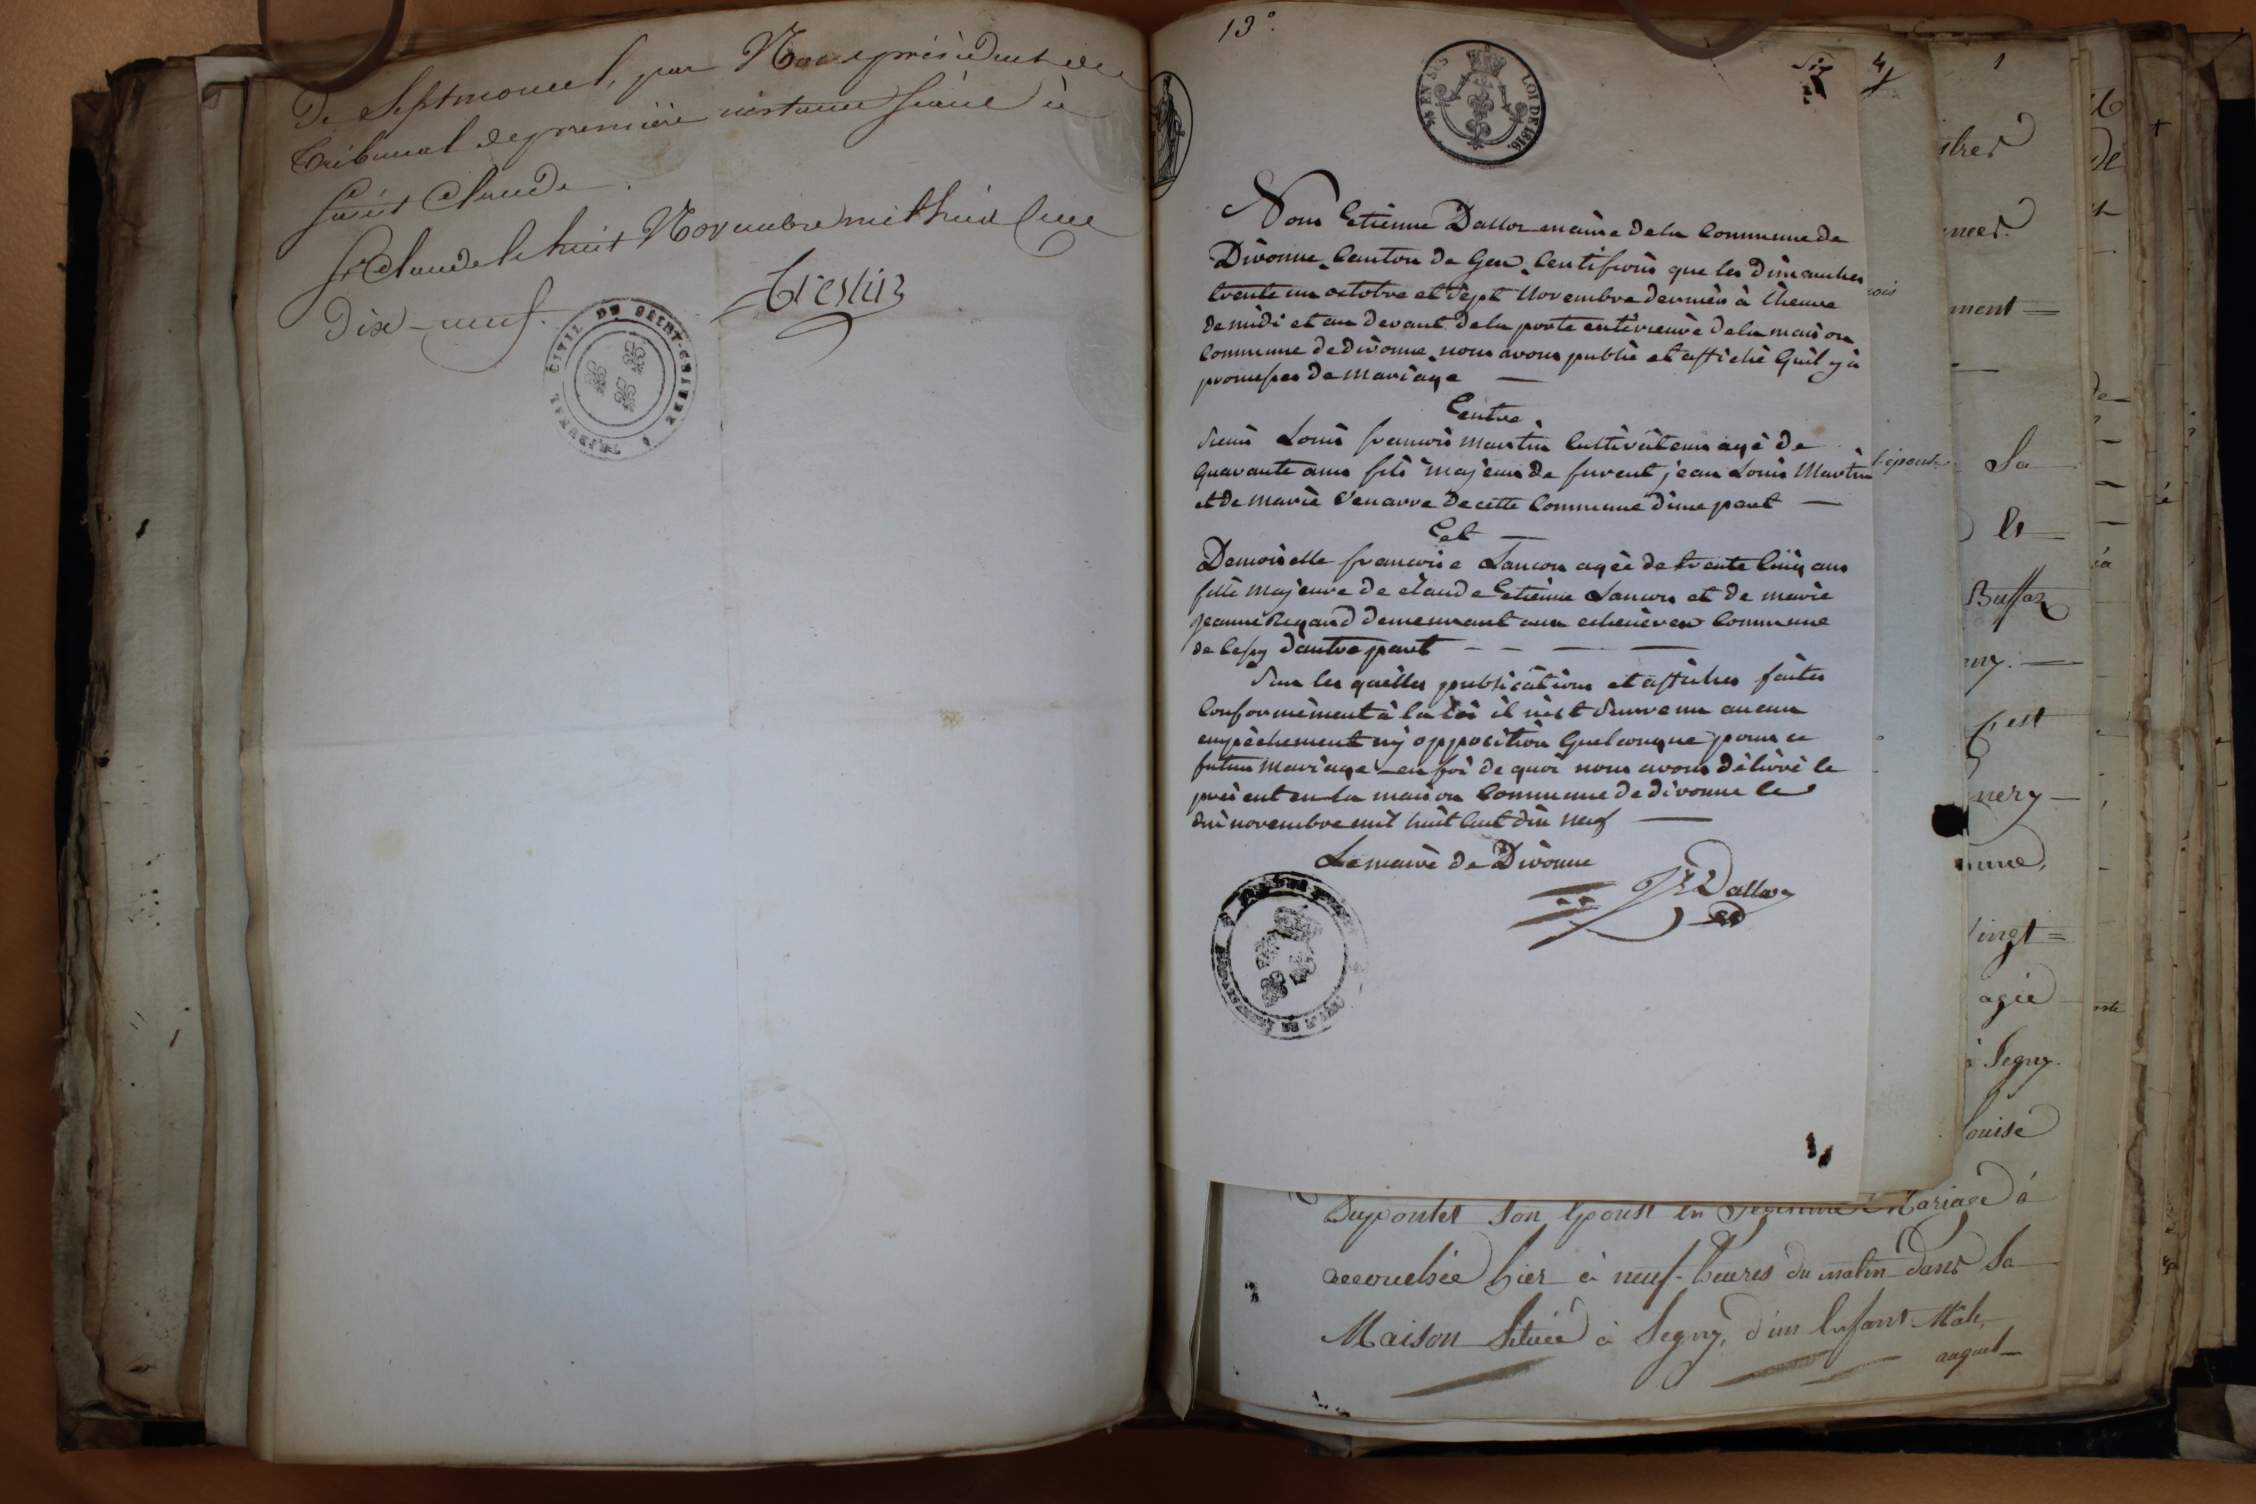 de Septmoncel, par Nous président du
tribunal de première instance séant à
Saint Claude.
St Claude le huit Novembre mil huit cent
dix-neuf.
TRIBUNAL CIVIL DE SAINT-CLAUDE
13°.
EN SUS LOI DE 1816.
Nous Etienne Dalloz maire de la Commune de
Divonne Canton de Gex Certifions que les dimanches
trente un octobre et Sept Novembre dernièr à l'heure
de midi et au devant de la porte entérieure de la maison
Commune de divonne nous avons publié et affiché Quil y à
promesses de Mariage —
Entre
Louis francois Martin Cultivateur agé de
Quarante ans fils majeur de furent jean Louis Martin
et de Marie Venarre de cette Commune d'une part —
Et —
Demoiselle francoise Lancon agée de trente Cinq ans
fille Majeure de claude Etienne Lancon et de marie
jeanne Regard demeurant aux Commune
de Cessy d'autre part — — — —
Sur les quelles publications et affiches faites
Conformément à la loi il n'est Survenu aucun
empèchement ny opposition Quelconque pour ce
futur Mariage — en foi de quoi nous avons délivré le
présent en la maison Commune de divonne le
dix novembre mil huit Cent dix neuf —
Le maire de Divonne
Dalloz
ment =
l'épouse
Sa
Et
Buffaz
est
Vingt =
agée
à Segny
Louise
son Epoux en Mariage à
accouchée hier à neuf heures du matin dans Sa
Maison Située à Segny, d'un Enfant Mâle,
auquel —